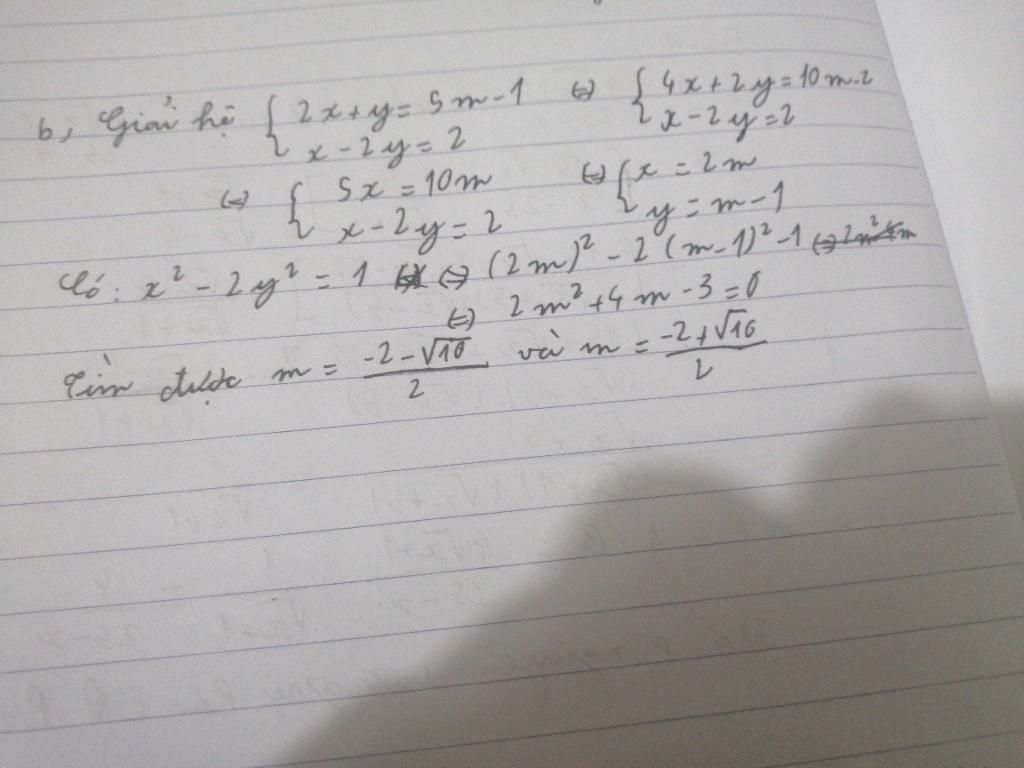 b, Giải hệ { 2x+y=5m-1 (=) { 4x+2y=10m-2
x-2y=2 x-2y=2
(=) { 5x=10m (=) { x=2m
x-2y=2 y=m-1
Có: x² - 2y² = 1 (=) (2m)² - 2(m-1)² -1
(=) 2m²+4m-3=0
Tìm được m = (-2-√10)/2 và m = (-2+√10)/2